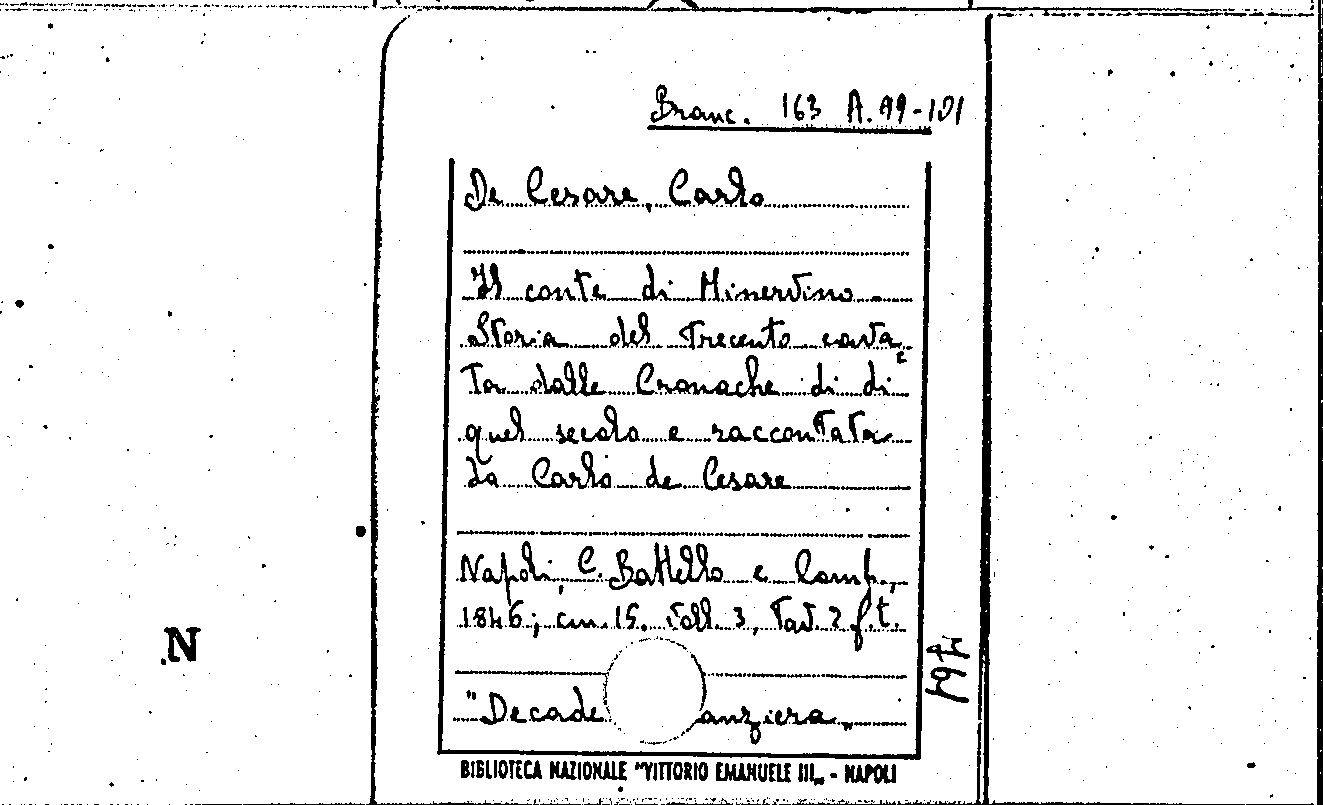 Branc. 163 A. 99-101
De Cesare, Carlo
Il conte di Minervino
Storia del Trecento cava
ta dalle Cronache di di
quel secolo e raccontata
da Carlo de Cesare
Napoli, C. Battello e Comp.,
1846; cm. 15. voll. 3, tav. 2 f.t.
"Decade anziera"
N
BIBLIOTECA NAZIONALE "VITTORIO EMANUELE III" - NAPOLI